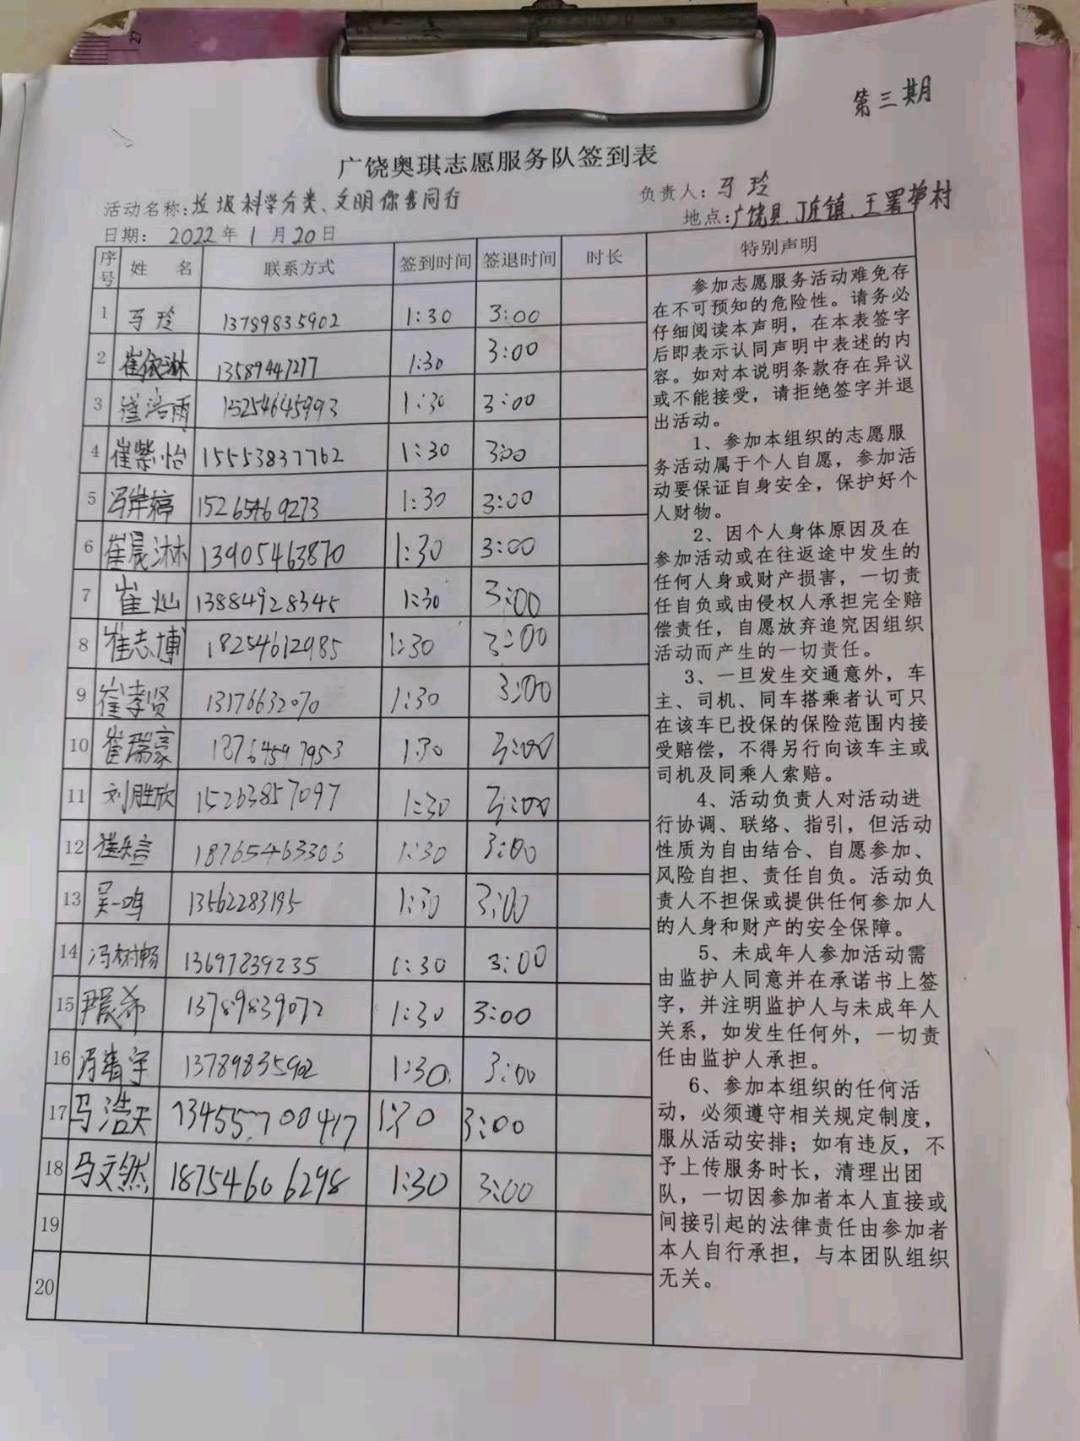 第三期
广饶奥琪志愿服务队签到表
活动名称：垃圾科学分类、文明你我同行
负责人：马玲
日期： 2022年1月20日
地点：广饶县、丁庄镇、王署埠村
序号 姓 名 联系方式 签到时间 签退时间 时长 特别声明
1 马玲 13789835902 1:30 3:00
2 崔依淋 13589447277 1:30 3:00
3 崔浩雨 15254645993 1:30 3:00
4 崔紫怡 15553837762 1:30 3:00
5 冯婷 15265469273 1:30 3:00
6 崔晨淋 13905463870 1:30 3:00
7 崔灿 13884928345 1:30 3:00
8 崔志博 18254612985 1:30 3:00
9 崔孝贤 13176632070 1:30 3:00
10 崔瑞豪 18764597953 1:30 3:00
11 刘胜欣 15263857097 1:30 3:00
12 崔 18765463306 1:30 3:00
13 吴一鸣 13562283195 1:30 3:00
14 冯树畅 13697239235 1:30 3:00
15 尹晨希 13789839072 1:30 3:00
16 冯靖宇 13789835902 1:30 3:00
17 马浩天 13455700417 1:30 3:00
18 马文然 18754606298 1:30 3:00
19
20
参加志愿服务活动难免存
在不可预知的危险性。请务必
仔细阅读本声明，在本表签字
后即表示认同声明中表述的内
容。如对本说明条款存在异议
或不能接受，请拒绝签字并退
出活动。
1、参加本组织的志愿服
务活动属于个人自愿，参加活
动要保证自身安全，保护好个
人财物。
2、因个人身体原因及在
参加活动或在往返途中发生的
任何人身或财产损害，一切责
任自负或由侵权人承担完全赔
偿责任，自愿放弃追究因组织
活动而产生的一切责任。
3、一旦发生交通意外，车
主、司机、同车搭乘者认可只
在该车已投保的保险范围内接
受赔偿，不得另行向该车主或
司机及同乘人索赔。
4、活动负责人对活动进
行协调、联络、指引，但活动
性质为自由结合、自愿参加、
风险自担、责任自负。活动负
责人不担保或提供任何参加人
的人身和财产的安全保障。
5、未成年人参加活动需
由监护人同意并在承诺书上签
字，并注明监护人与未成年人
关系，如发生任何外，一切责
任由监护人承担。
6、参加本组织的任何活
动，必须遵守相关规定制度，
服从活动安排；如有违反，不
予上传服务时长，清理出团
队，一切因参加者本人直接或
间接引起的法律责任由参加者
本人自行承担，与本团队组织
无关。